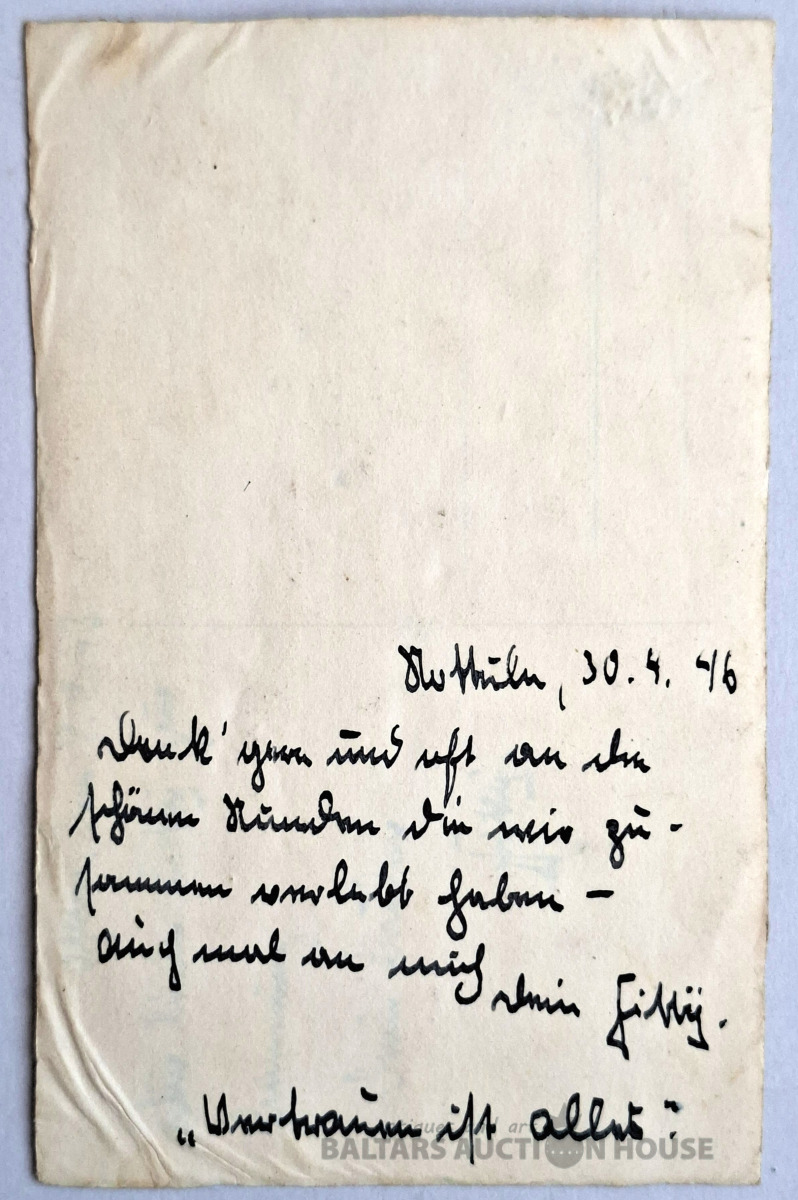 Nottuln, 30. 4. 46
Denk' gern und oft an die
schönen Stunden die wir zu-
sammen verlebt haben –
auch mal an mich
Dein
„Vertrauen ist alles“
BALTARS AUCTION HOUSE